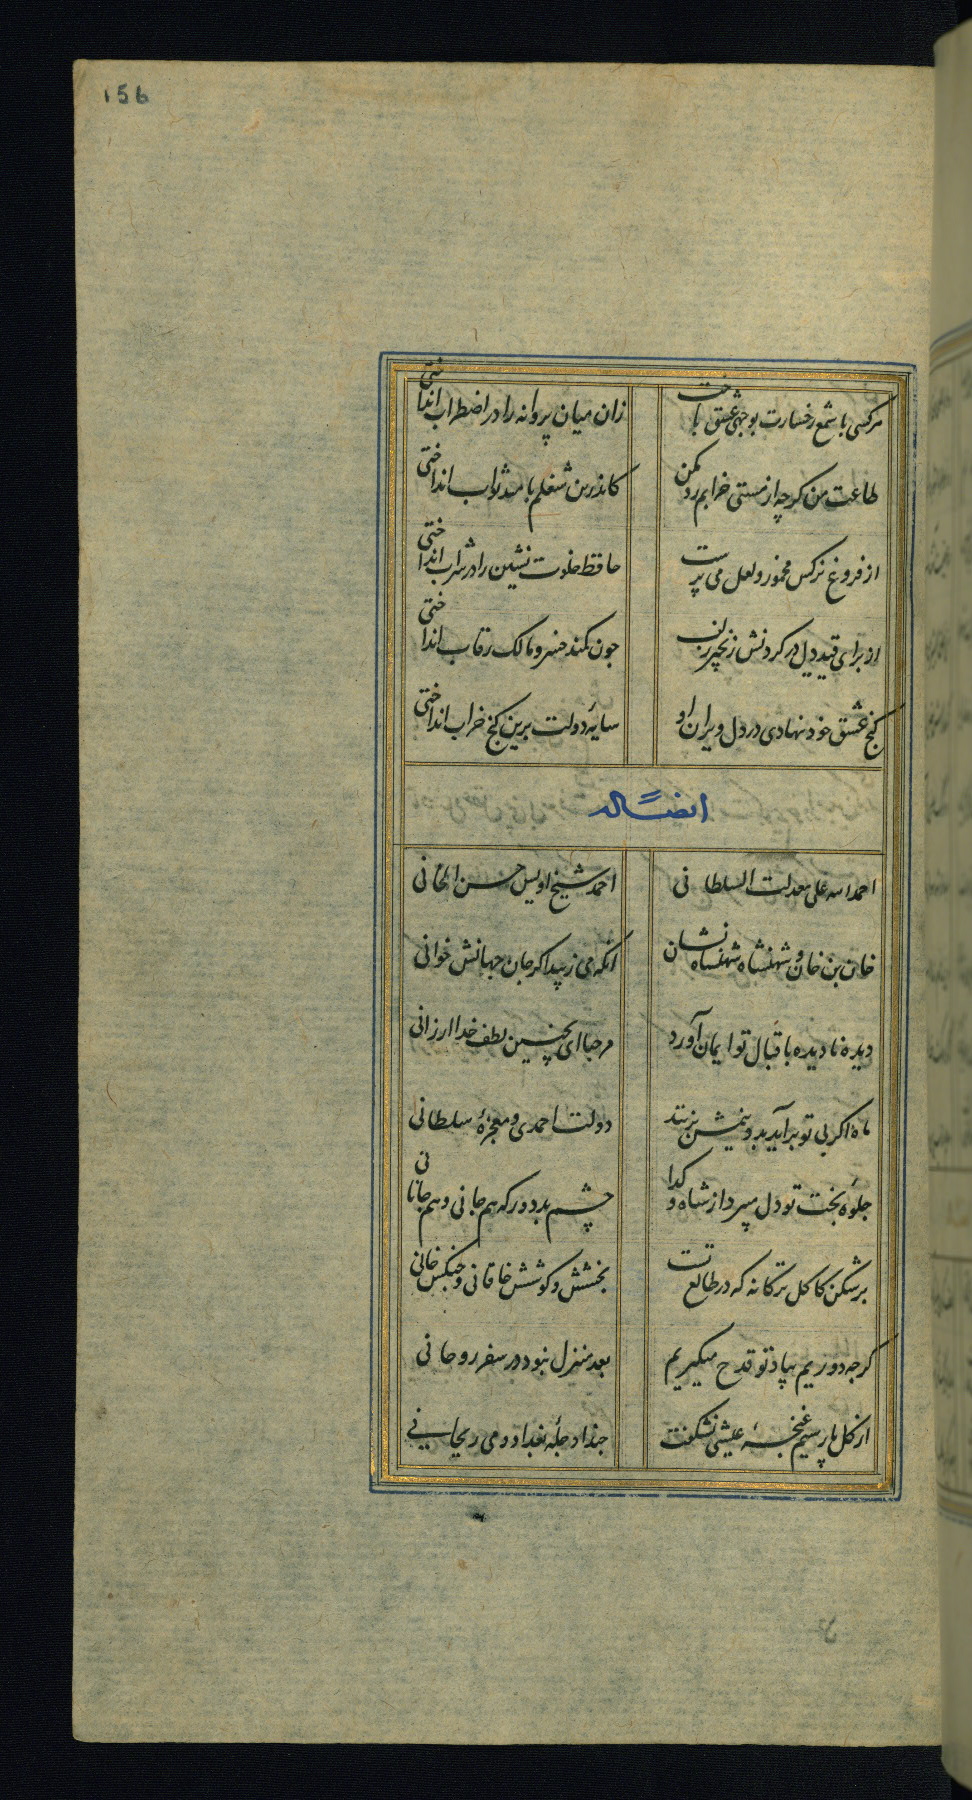 156
هرکسی با شمع رخسارت بوجهی عشق باخت
زان میان پروانه را در اضطراب انداختی
طاعت من کرچه از مستی خرابم رد مکن
کاندرین شغلم بامید ثواب انداختی
از فروغ نرکس مخمور و لعل می پرست
حافظ خلوت نشین را در شراب انداختی
از برای قید دل در کردنش زنجیر زلف
چون کمند خسرو مالک رقاب انداختی
کنج عشق خود نهادی در دل ویران او
سایه دولت برین کنج خراب انداختی
ایضاً له
احمد الله علی معدلت السلطانی
احمد شیخ اویس حسن ایلخانی
خان بن خان و شهنشاه شهنشاه نشان
انکه می زیبد اکر جان جهانش خوانی
دیده نادیده باقبال تو ایمان آورد
مرحبا ای بچنین لطف خدا ارزانی
ماه اکر بی تو برآید بدو نیمش بزنند
دولت احمدی و معجزهٔ سلطانی
جلوه بخت تو دل میبرد از شاه و کدا
چشم بد دور که هم جانی و هم جانانی
برشکن کاکل ترکانه که در طالع تست
بخشش و کوشش خاقانی و چنکس خانی
کرچه دوریم بیاد تو قدح میکیریم
بعد منزل نبود در سفر روحانی
از کل پارسیم غنچهٔ عیشی نشکفت
حبذا دجلهٔ بغداد و می ریحانی